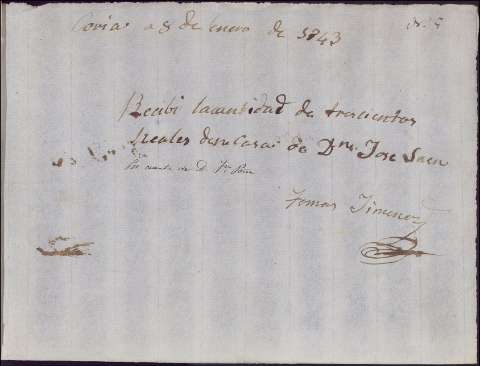 Corias a 8 de enero de 1843
Recibi lacantidad de trescientos
Reales desu Casa de Dn Jose Saen
Tomas Jimenez